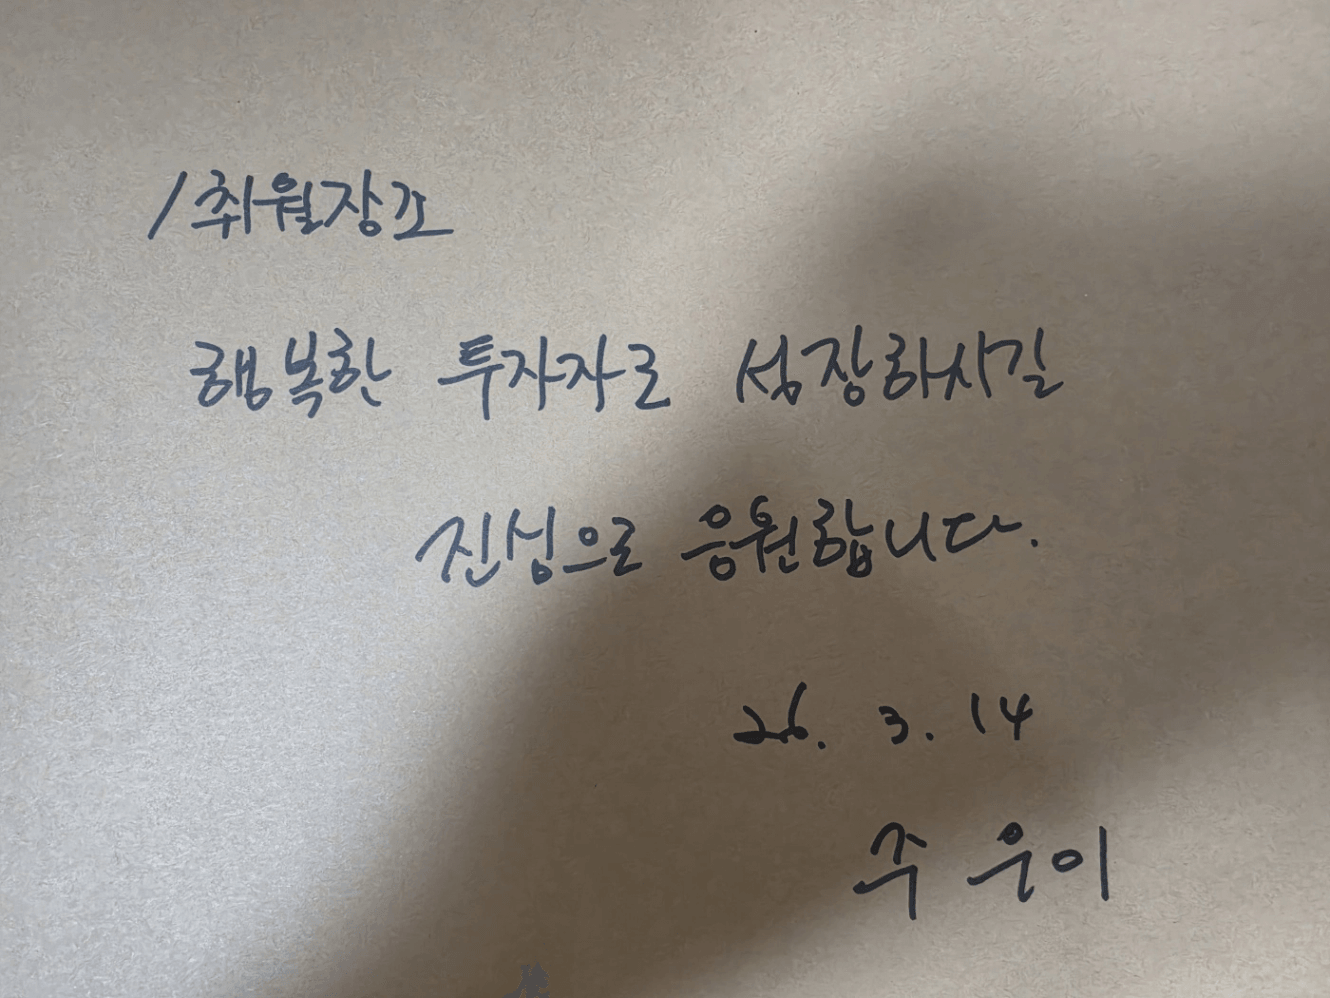 /취월장포
행복한 투자자로 성장하시길
진심으로 응원합니다.
26. 3. 14
주 우이